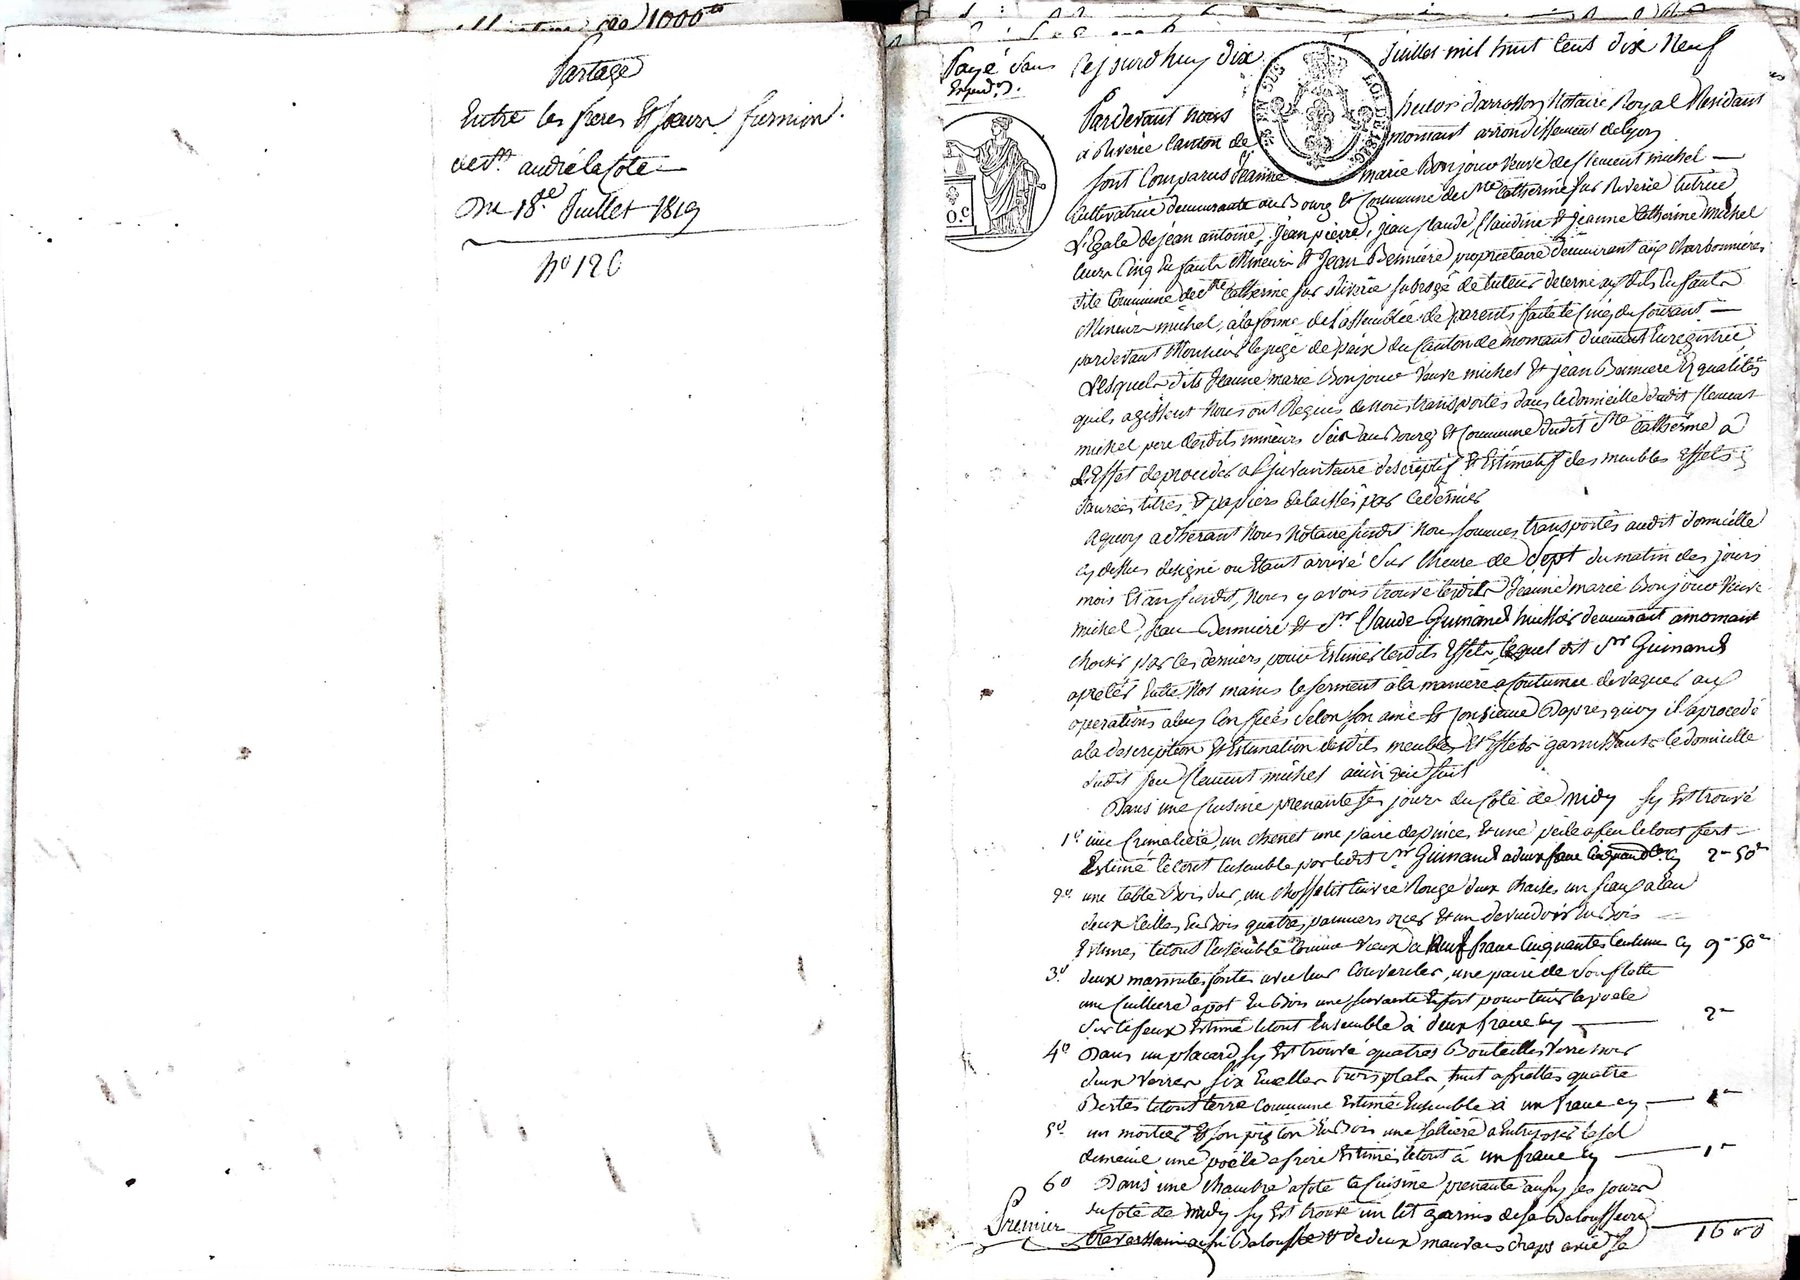 Partage
Entre les freres Et soeurs furnion.
de St. andré la Cote
Du 18e. Juillet 1819
No 120
Payé sans
Cejourdhuy dix juillet mil huit Cens dix Neuf
Pardevant nous hector darrasson Notaire Royal Residant
a Riverie Canton de mornant arrondissement de lyon
sont Comparus Jeanne marie Bonjour veuve de Clement michel
Cultivatrice demeurante au Bourg Et Commune de Ste Catherine sur Riverie tutrice
L'Egale de jean antoine, jean pierre, jean Claude, Claudine Et Jeanne Catherine michel
leurs Cinq Enfants Mineurs Et Jean Bernieré propriétaire demeurant aux Charbonnieres
dite Commune de Ste Catherine sur Riverie subrogé de tuteur decerné auxdits Enfants
Mineurs michel, a la forme de l'assemblée de parents faite le Cinq du Courant
pardevant Monsieur le juge de paix du Canton de mornant duement Enregistrée
Lesquels dits Jeanne marie Bonjour veuve michel Et jean Berniere Es qualités
quils agissent Nous ont Requis de nous transporter dans le domicille dudit Clement
michel pere desdits mineurs Scis au Bourg Et Commune dudit Ste Catherine a
L'Effet de proceder a L'jnvantaire descriptif Et Estimatif des meubles Effets
danrées titres Et papiers delaissés par ce dernier
a quoy adherant Nous Notaire susdit Nous sommes transportés audit domicille
cy dessus designé ou Etant arrivé sur l'heure de Sept du matin des jours
mois Et an susdit, Nous y avons trouvé lesdits Jeanne marie Bonjour veuve
michel, Jean Berniere Et Sr. Claude Guinand huissier demeurant a mornant
choisis par les derniers pour Estimer lesdits Effets, lequel dit Sr Guinand
a preté Entre Nos mains le serment a la maniere acoutumée de vaquer aux
operations a luy Confiées Selon son ame Et Consience D'apres quoy il a procedé
a la description Et Estimation desdits meubles Et Effets garnissants le domicille
dudit feu Clement michel ainsi que suit
Dans une Cuisine prenante ses jours du Coté de midy sy Est trouvé
1o une Crimaliere, un chenet une paire de pince, Et une pelle a feu le tout fert
Estimé le tout Ensemble par ledit Sr Guinand a deux franc Cinquante Cy 2-50
2o une table Bois dur, un choffelit cuivre Rouge deux chaises un seaux a eau
deux seilles En Bois quatres panniers ozier Et un devidoir En Bois
Estimés le tout Ensemble Comme vieux a Neuf franc Cinquantes Centime Cy 9-50
3o deux marmites fontes avec leur Couvercles, une paire de Soufflotte
une Cuilliere apot En Bois une servante En fert pour tenir la poele
Sur le feux Estimé le tout Ensemble à deux franc Cy 2-
4o Dans un placard sy Est trouvé quatres Bouteilles verre noir
deux verres, six Ecuelles trois plats, huit assiettes quatre
Bertes le tout terre commune Estimé Ensemble à un franc Cy 1-
5o un mortier Et son piston En Bois une salliere a Entreposer le sel
dememe une poële a frire Estimés le tout à un franc Cy 1-
6o Dans une Chambre a Coté la Cuisine prenante aussy ses jours
du Coté de midy sy Est trouvé un lit garnis de sa Baloussiere
traversain aussi Balousse Et de deux mauvais draps avec sa
Premier
16 0